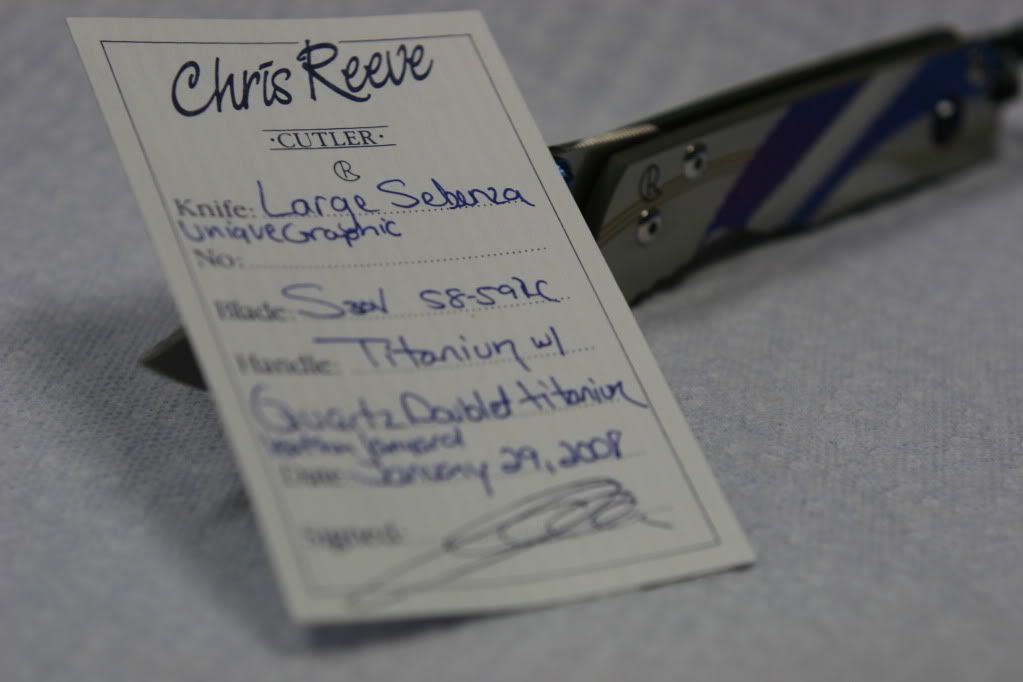 Chris Reeve
·CUTLER·
R
Knife: Large Sebenza
Unique Graphic
No:
Blade: S30V 58-59RC
Handle: Titanium w/
Quartz Doublet titanium
Date: January 29, 2008
Signed:
R